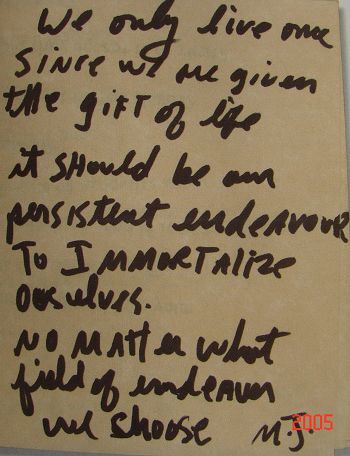 We only live once
Since we are given
the gift of life
it should be our
persistent endeavour
To Immortalize
Ourselves.
No matter what
field of endeavor
we choose M.J.
2005